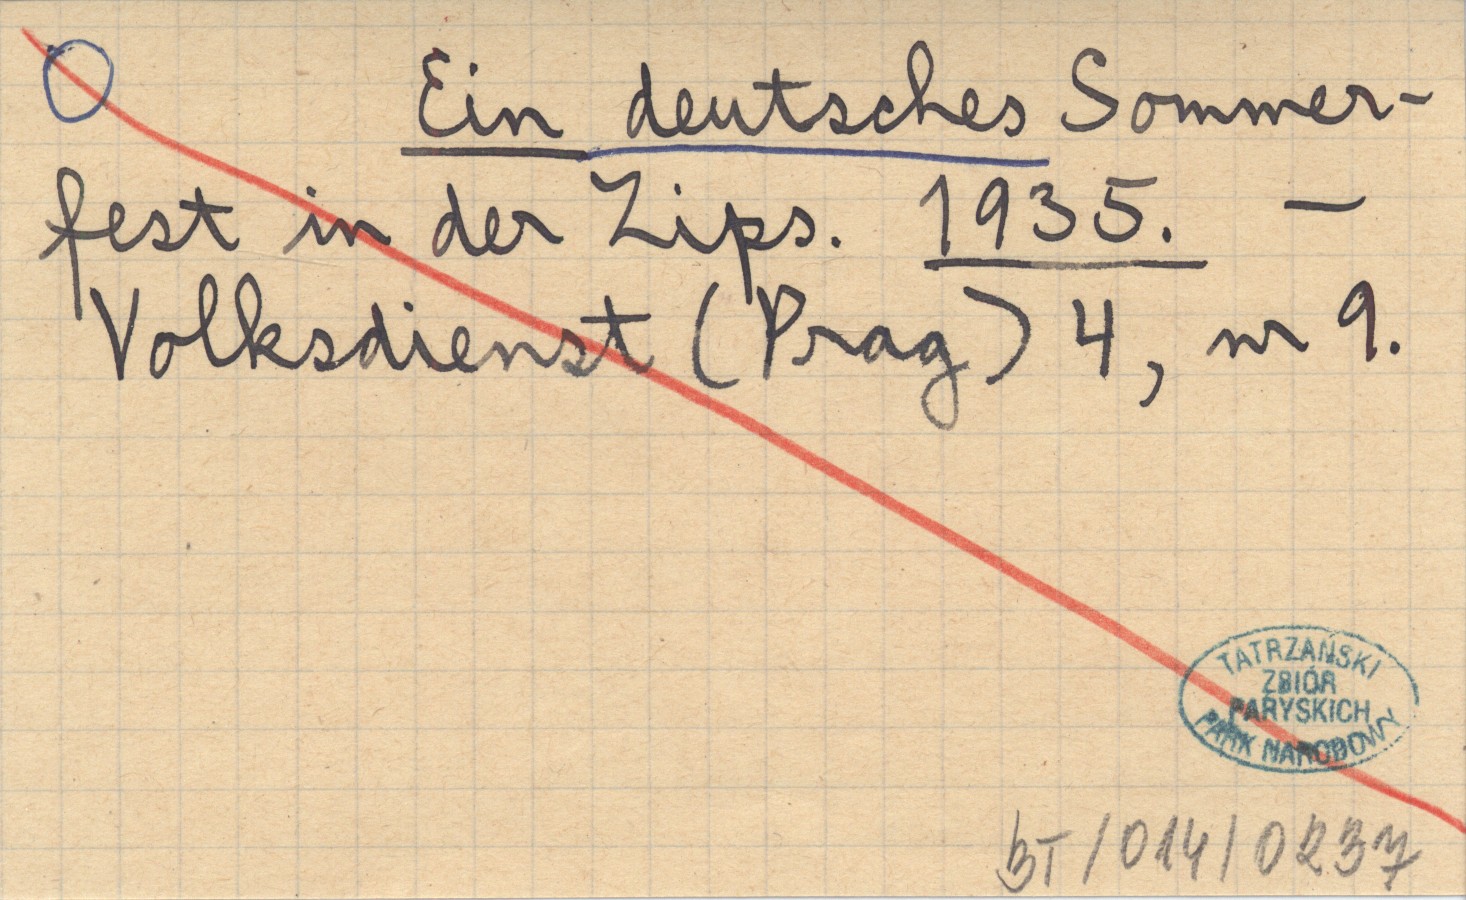 Ein deutsches Sommer-
fest in der Zips. 1935. —
Volksdienst (Prag) 4, nr 9.
TATRZAŃSKI
ZBIÓR
PARYSKICH
PARK NARODOWY
BT/014/0237